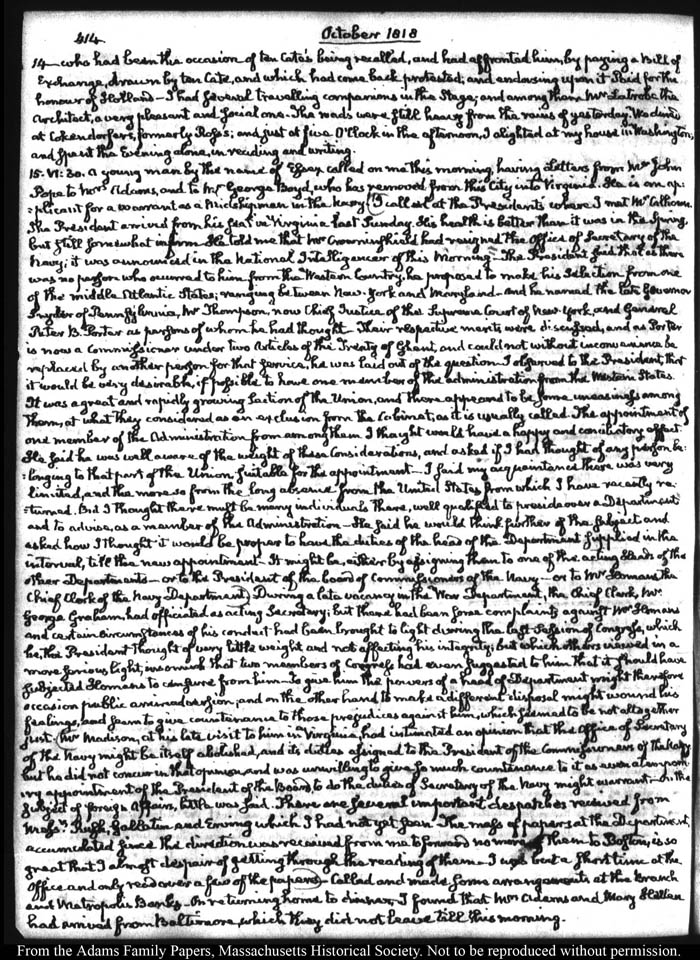 414
October 1818
14 — who had been the occasion of ten Cate's being recalled, and had affronted him, by paying a Bill of
Exchange, drawn by ten Cate, and which had come back protested; and endorsing upon it Paid for the
honour of Holland — I had several travelling companions in the Stage; and among them Mr Latrobe the
Architect, a very pleasant and social one. The roads were still heavy from the rains of yesterday. We dined
at Cokendorfer's, formerly Ross's; and just at five O'Clock in the afternoon, I alighted at my house in Washington,
and spent the Evening alone, in reading and writing.
15. VI: 30. A young man by the name of Essex called on me this morning, having Letters from Mrs John
Pope to Mrs Adams, and to Mr George Boyd, who has removed from this City into Virginia. He is an ap-
:plicant for a warrant as a Midshipman in the Navy. I call'd at the President's where I met Mr Calhoun.
The President arrived from his seat in Virginia last Sunday. His health is better than it was in the Spring,
but still somewhat infirm. He told me that Mr Crowninshield had resigned the Office of Secretary of the
Navy; it was announced in the National Intelligencer of this Morning — The President said that as there
was no person who occurred to him from the Western Country, he proposed to make his selection from one
of the middle Atlantic States; ranging between New-York and Maryland — and he named the late Governor
Snyder of Pennsylvania, Mr Thompson, now Chief Justice of the Supreme Court of New-York, and General
Peter B. Porter as persons of whom he had thought. Their respective merits were discussed, and as Porter
is now a Commissioner under two Articles of the Treaty of Ghent, and could not without inconvenience be
replaced by another person for that service, he was laid out of the question. I observed to the President, that
it would be very desirable, if possible to have one member of the administration from the Western States.
It was a great and rapidly growing Section of the Union, and there appeared to be some uneasiness among
them, at what they considered as an exclusion from the Cabinet, as it is usually called. The appointment of
one member of the Administration from among them I thought would have a happy and conciliatory effect.
He said he was well aware of the weight of these considerations, and asked if I had thought of any person be-
:longing to that part of the Union suitable for the appointment — I said my acquaintance there was very
limited, and the more so from the long absence from the United States from which I have recently re-
:turned. But I thought there must be many individuals there, well qualified to preside over a Department
and to advise, as a member of the Administration — He said he would think further of the subject and
asked how I thought it would be proper to have the duties of the head of the Department supplied in the
interval, till the new appointment — It might be, either by assigning them to one of the acting Heads of the
other Departments — or to the President of the board of Commissioners of the Navy — or to Mr Homans the
Chief Clerk of the Navy Department. During a late vacancy in the War Department, the Chief Clerk, Mr
George Graham, had officiated as acting Secretary; but there had been some complaints against Mr Homans
and certain circumstances of his conduct had been brought to light during the last Session of Congress, which
he, the President thought of very little weight and not affecting his integrity; but which others viewed in a
more serious light, insomuch that two members of Congress had even suggested to him that it should have
subjected Homans to censure from him — To give him the powers of a head of Department might therefore
occasion public animadversion, and on the other hand to make a different disposal might wound his
feelings, and seem to give countenance to those prejudices against him, which seemed to be not altogether
just. Mr Madison, at his late visit to him in Virginia, had intimated an opinion that the Office of Secretary
of the Navy might be itself abolished, and its duties assigned to the President of the Commissioners of the Navy
but he did not concur in that opinion, and was unwilling to give so much countenance to it as even a tempora-
ry appointment of the President of the Board to do the duties of Secretary of the Navy might warrant — On the
subject of foreign Affairs, little was said. There are several important despatches received from
Messrs Rush, Gallatin and Erving which I had not yet seen. The mass of papers at the Department,
accumulated since the direction was received from me to forward no more of them to Boston, is so
great that I almost despair of getting through the reading of them — I was but a short time at the
Office and only read over a few of the papers — Called and made some arrangements at the Branch
and Metropolis Banks — On returning home to dinner, I found that Mrs Adams and Mary Hellen
had arrived from Baltimore, which they did not leave till this morning.
From the Adams Family Papers, Massachusetts Historical Society. Not to be reproduced without permission.